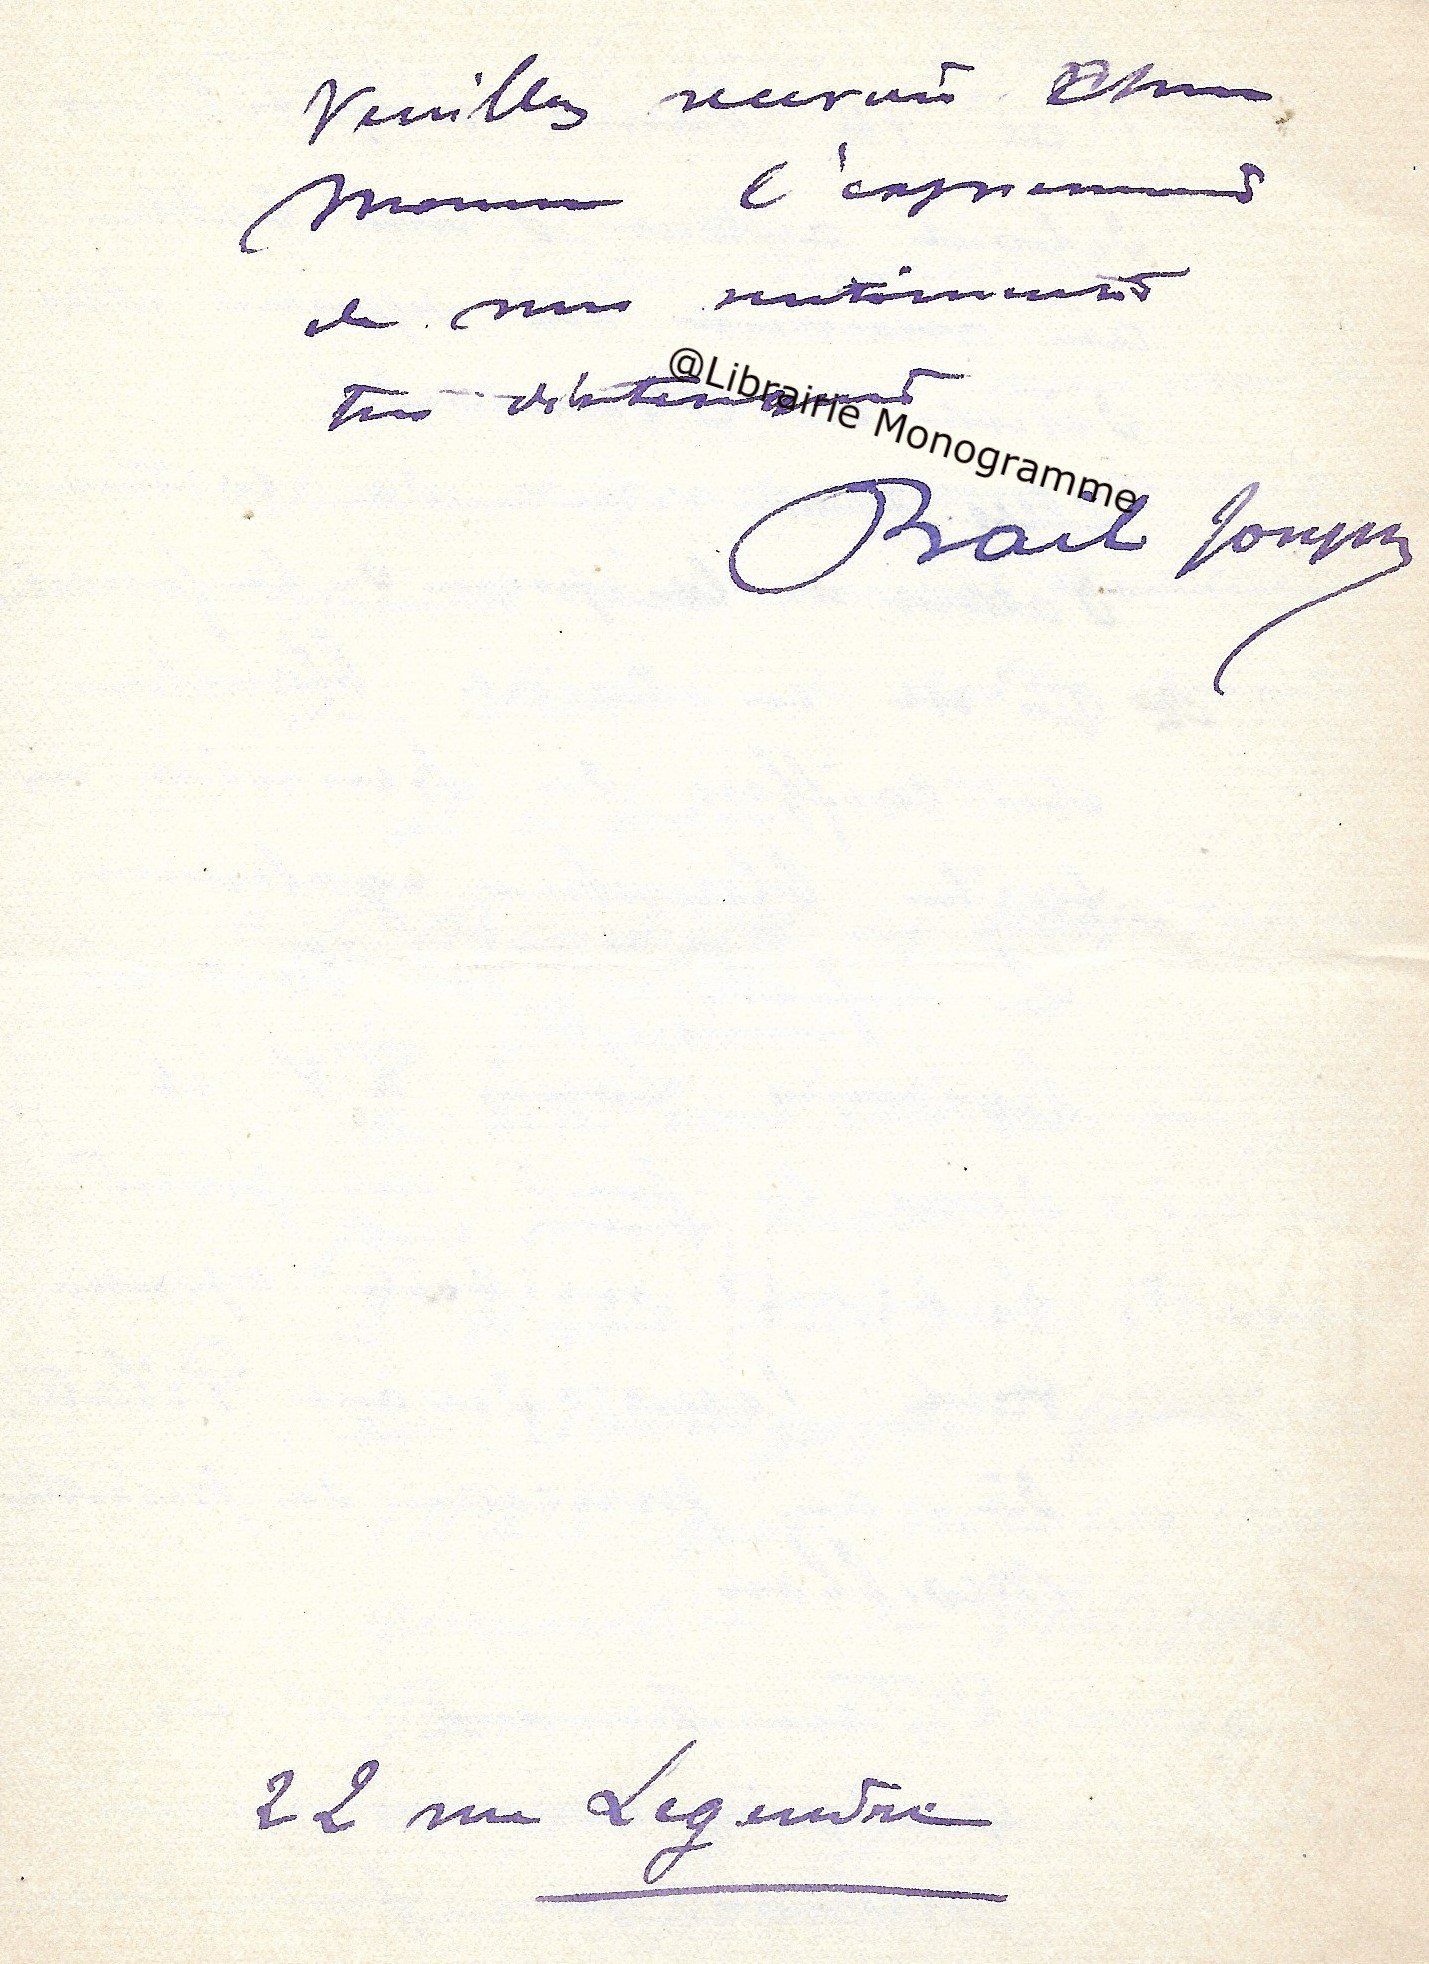 Veuillez recevoir Cher
Monsieur l'expression
de mes sentiments
très distingués
@Librairie Monogramme
Bail Joseph
22 rue Legendre